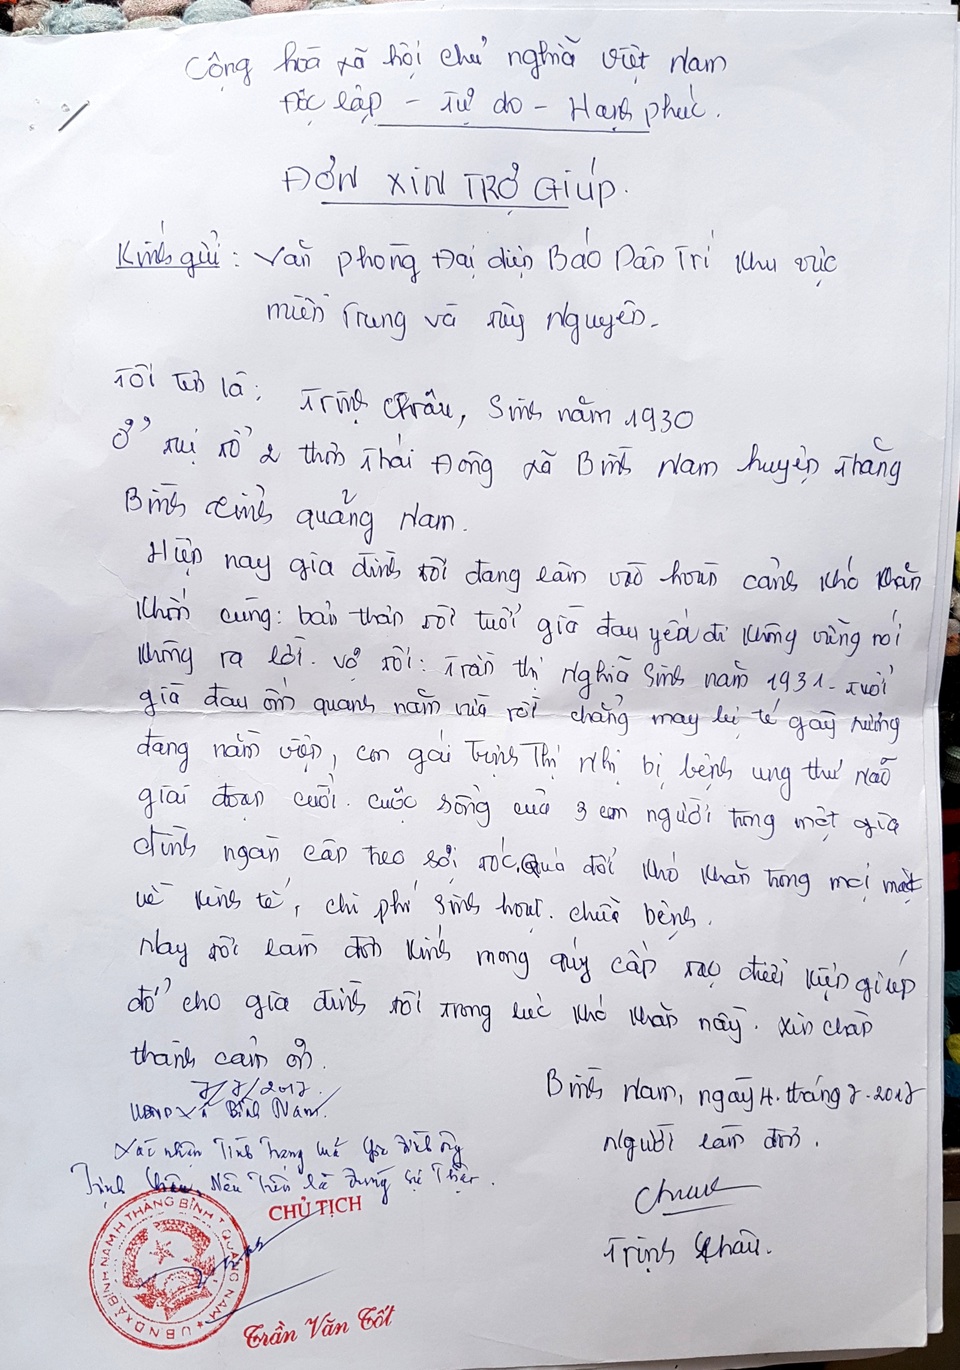 Cộng hoà xã hội chủ nghĩa Việt Nam
Độc lập - Tự do - Hạnh phúc.
ĐƠN XIN TRỢ GIÚP.
Kính gửi: Văn phòng Đại diện Báo Dân Trí khu vực
miền Trung và Tây Nguyên.
Tôi tên là: Trịnh Châu, Sinh năm 1930
Ở tại tổ 2 thôn Thái Đông xã Bình Nam huyện Thăng
Bình tỉnh quảng Nam.
Hiện nay gia đình tôi đang lâm vào hoàn cảnh khó khăn
khốn cùng: bản thân tôi tuổi già đau yếu đi không vững nói
không ra lời. vợ tôi: Trần thị Nghĩa Sinh năm 1931. tuổi
già đau ốm quanh năm nữa rồi chẳng may bị té gãy xương
đang nằm viện, con gái Trịnh Thị Nhị bị bệnh ung thư não
giai đoạn cuối. cuộc sống của 3 con người trong một gia
đình ngàn cân treo sợi tóc. Quá đổi khó khăn trong mọi mặt
về kinh tế, chi phí sinh hoạt. chữa bệnh.
Nay tôi làm đơn kính mong quý cấp tạo điều kiện giúp
đỡ cho gia đình tôi trong lúc khó khăn này. xin chân
thành cảm ơn.
7/7/2017.
UBND xã Bình Nam.
Bình Nam, ngày 4. tháng 7. 2017
Người làm đơn.
Xác nhận Tình Trạng gia đình ông
Trịnh Châu, Nêu Trên là đúng sự Thật.
CHỦ TỊCH
Trịnh Châu.
U B N D XÃ BÌNH NAM H THĂNG BÌNH T QUẢNG NAM
Trần Văn Tốt